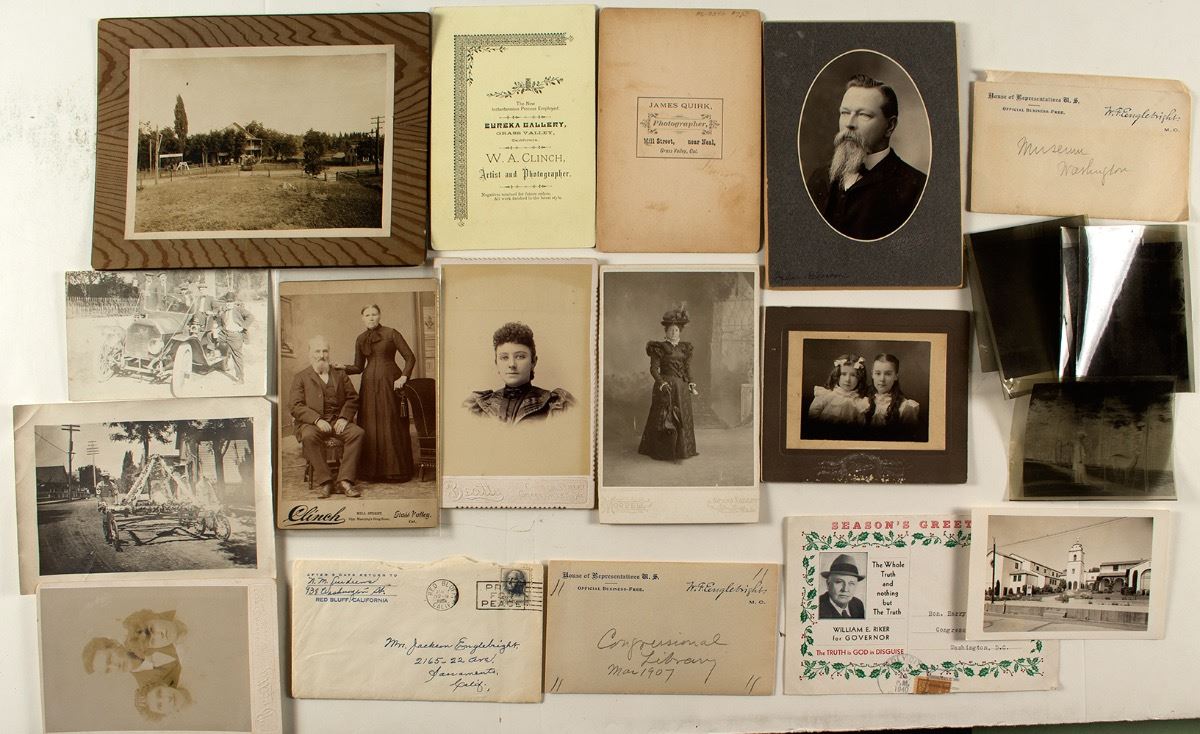 The New
Instantaneous Process Employed.
EUREKA GALLERY,
GRASS VALLEY,
California.
W. A. CLINCH,
Artist and Photographer.
Negatives retained for future orders.
All work finished in the best style.
JAMES QUIRK,
Photographer,
Mill Street, near Neal,
Grass Valley, Cal.
House of Representatives U. S.
OFFICIAL BUSINESS-FREE.
W. F. Englebright
M. C.
Museum
Washington
Clinch
MILL STREET
Grass Valley,
Cal.
AFTER 5 DAYS RETURN TO
938 Washington St.
RED BLUFF, CALIFORNIA
RED BLUFF
CALIF.
PRAY
FOR
PEACE
Mrs. Jackson Englebright
2165-22 Ave.
Sacramento
Calif.
House of Representatives U. S.
OFFICIAL BUSINESS-FREE.
W. F. Englebright
M. C.
Congressional
Library
Mar 1907
SEASON'S GREET
The Whole
Truth
and
nothing
but
The Truth
WILLIAM E. RIKER
for GOVERNOR
The TRUTH is GOD in DISGUISE
Hon. Harry
Congress
Washington, D.C.
1940